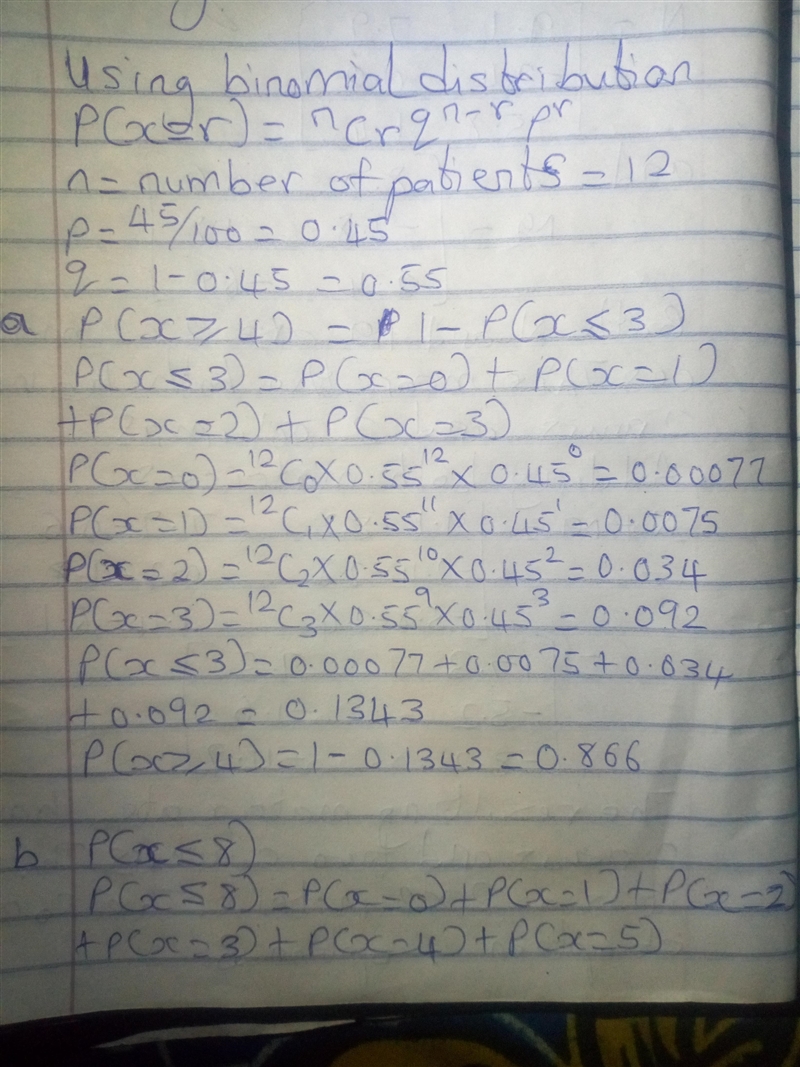 Using binomial distribution
P(x=r) = ⁿCr q^n-r p^r
n = number of patients = 12
p = 45/100 = 0.45
q = 1 - 0.45 = 0.55
a P(x ≥ 4) = 1 - P(x ≤ 3)
P(x ≤ 3) = P(x=0) + P(x=1)
+ P(x=2) + P(x=3)
P(x=0) = ¹²C₀ x 0.55¹² x 0.45⁰ = 0.00077
P(x=1) = ¹²C₁ x 0.55¹¹ x 0.45¹ = 0.0075
P(x=2) = ¹²C₂ x 0.55¹⁰ x 0.45² = 0.034
P(x=3) = ¹²C₃ x 0.55⁹ x 0.45³ = 0.092
P(x ≤ 3) = 0.00077 + 0.0075 + 0.034
+ 0.092 = 0.1343
P(x ≥ 4) = 1 - 0.1343 = 0.866
b P(x ≤ 8)
P(x ≤ 8) = P(x=0) + P(x=1) + P(x=2)
+ P(x=3) + P(x=4) + P(x=5)